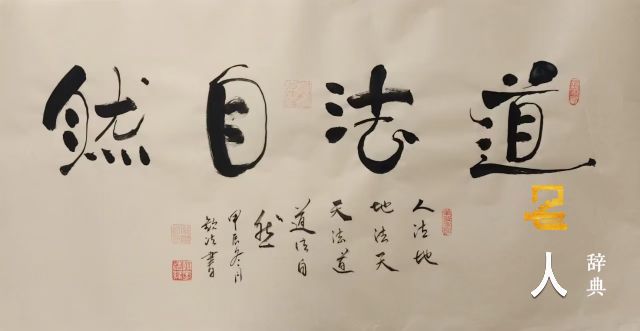 道法自然
人法地
地法天
天法道
道法自
然
甲辰冬月
書
名人
辞典